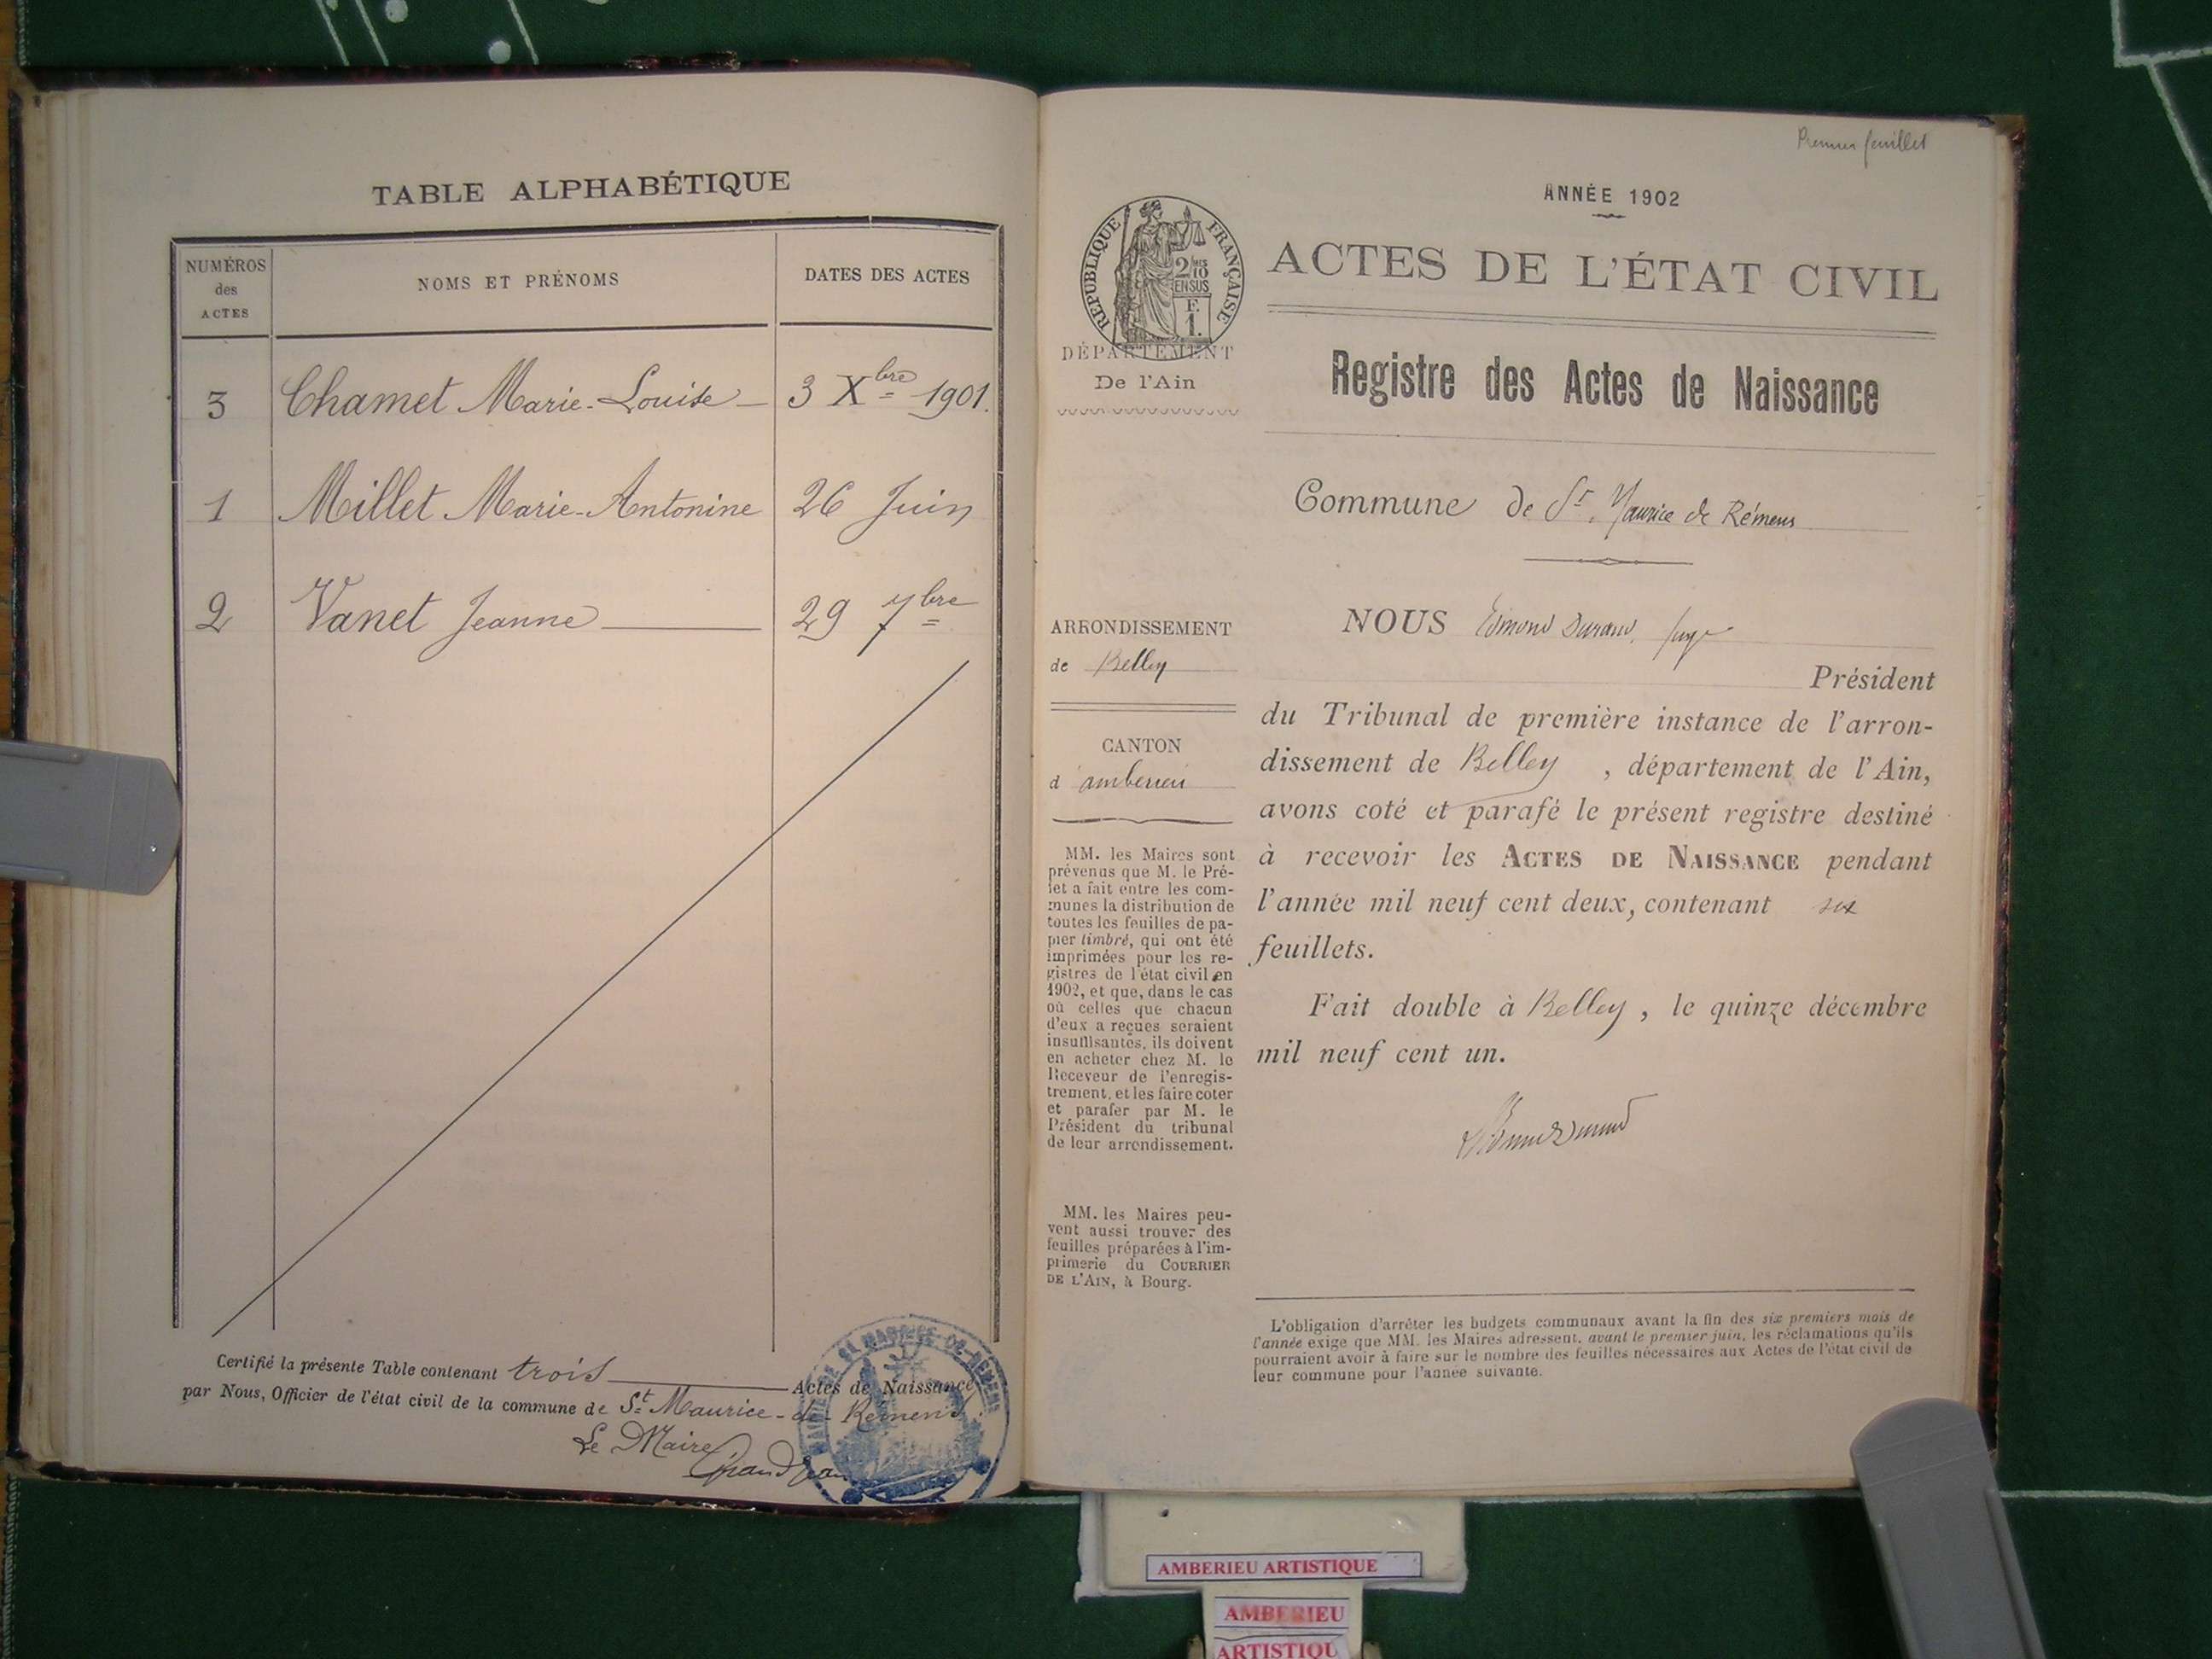 TABLE ALPHABÉTIQUE
NUMÉROS
des
ACTES
NOMS ET PRÉNOMS
DATES DES ACTES
3 Chamet Marie-Louise 3 Xbre 1901.
1 Millet Marie-Antonine 26 Juin
2 Vanet Jeanne 29 7bre
Certifié la présente Table contenant trois Actes de Naissance
par Nous, Officier de l'état civil de la commune de St Maurice-de-Rémens.
Le Maire
Grandjean
MAIRIE DE ST MAURICE-DE-REMENS
Premier feuillet
ANNÉE 1902
RÉPUBLIQUE FRANÇAISE
2/10
EN SUS
F.
1.
ACTES DE L'ÉTAT CIVIL
DÉPARTEMENT
De l'Ain
Registre des Actes de Naissance
Commune de St. Maurice de Rémens
ARRONDISSEMENT
de Belley
CANTON
d'amberieu
MM. les Maires sont
prévenus que M. le Pré-
fet a fait entre les com-
munes la distribution de
toutes les feuilles de pa-
pier timbré, qui ont été
imprimées pour les re-
gistres de l'état civil en
1902, et que, dans le cas
où celles que chacun
d'eux a reçues seraient
insuffisantes, ils doivent
en acheter chez M. le
Receveur de l'enregis-
trement, et les faire coter
et parafer par M. le
Président du tribunal
de leur arrondissement.
MM. les Maires peu-
vent aussi trouver des
feuilles préparées à l'im-
primerie du COURRIER
DE L'AIN, à Bourg.
NOUS Edmond Durand, juge
Président
du Tribunal de première instance de l'arron-
dissement de Belley, département de l'Ain,
avons coté et parafé le présent registre destiné
à recevoir les ACTES DE NAISSANCE pendant
l'année mil neuf cent deux, contenant six
feuillets.
Fait double à Belley, le quinze décembre
mil neuf cent un.
L'obligation d'arrêter les budgets communaux avant la fin des six premiers mois de
l'année exige que MM. les Maires adressent, avant le premier juin, les réclamations qu'ils
pourraient avoir à faire sur le nombre des feuilles nécessaires aux Actes de l'état civil de
leur commune pour l'année suivante.
AMBERIEU ARTISTIQUE
AMBERIEU
ARTISTIQU